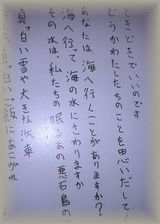 ときどきでいいのです
どうかわたしたちのことを思いだして
あなたは、海へ行くことがありますか？
海へ行って、海の水にさわりますか
その水は、私たちの眠るあの悪石島の
真っ白い雪や大きな汽車
白い
にあこがれ